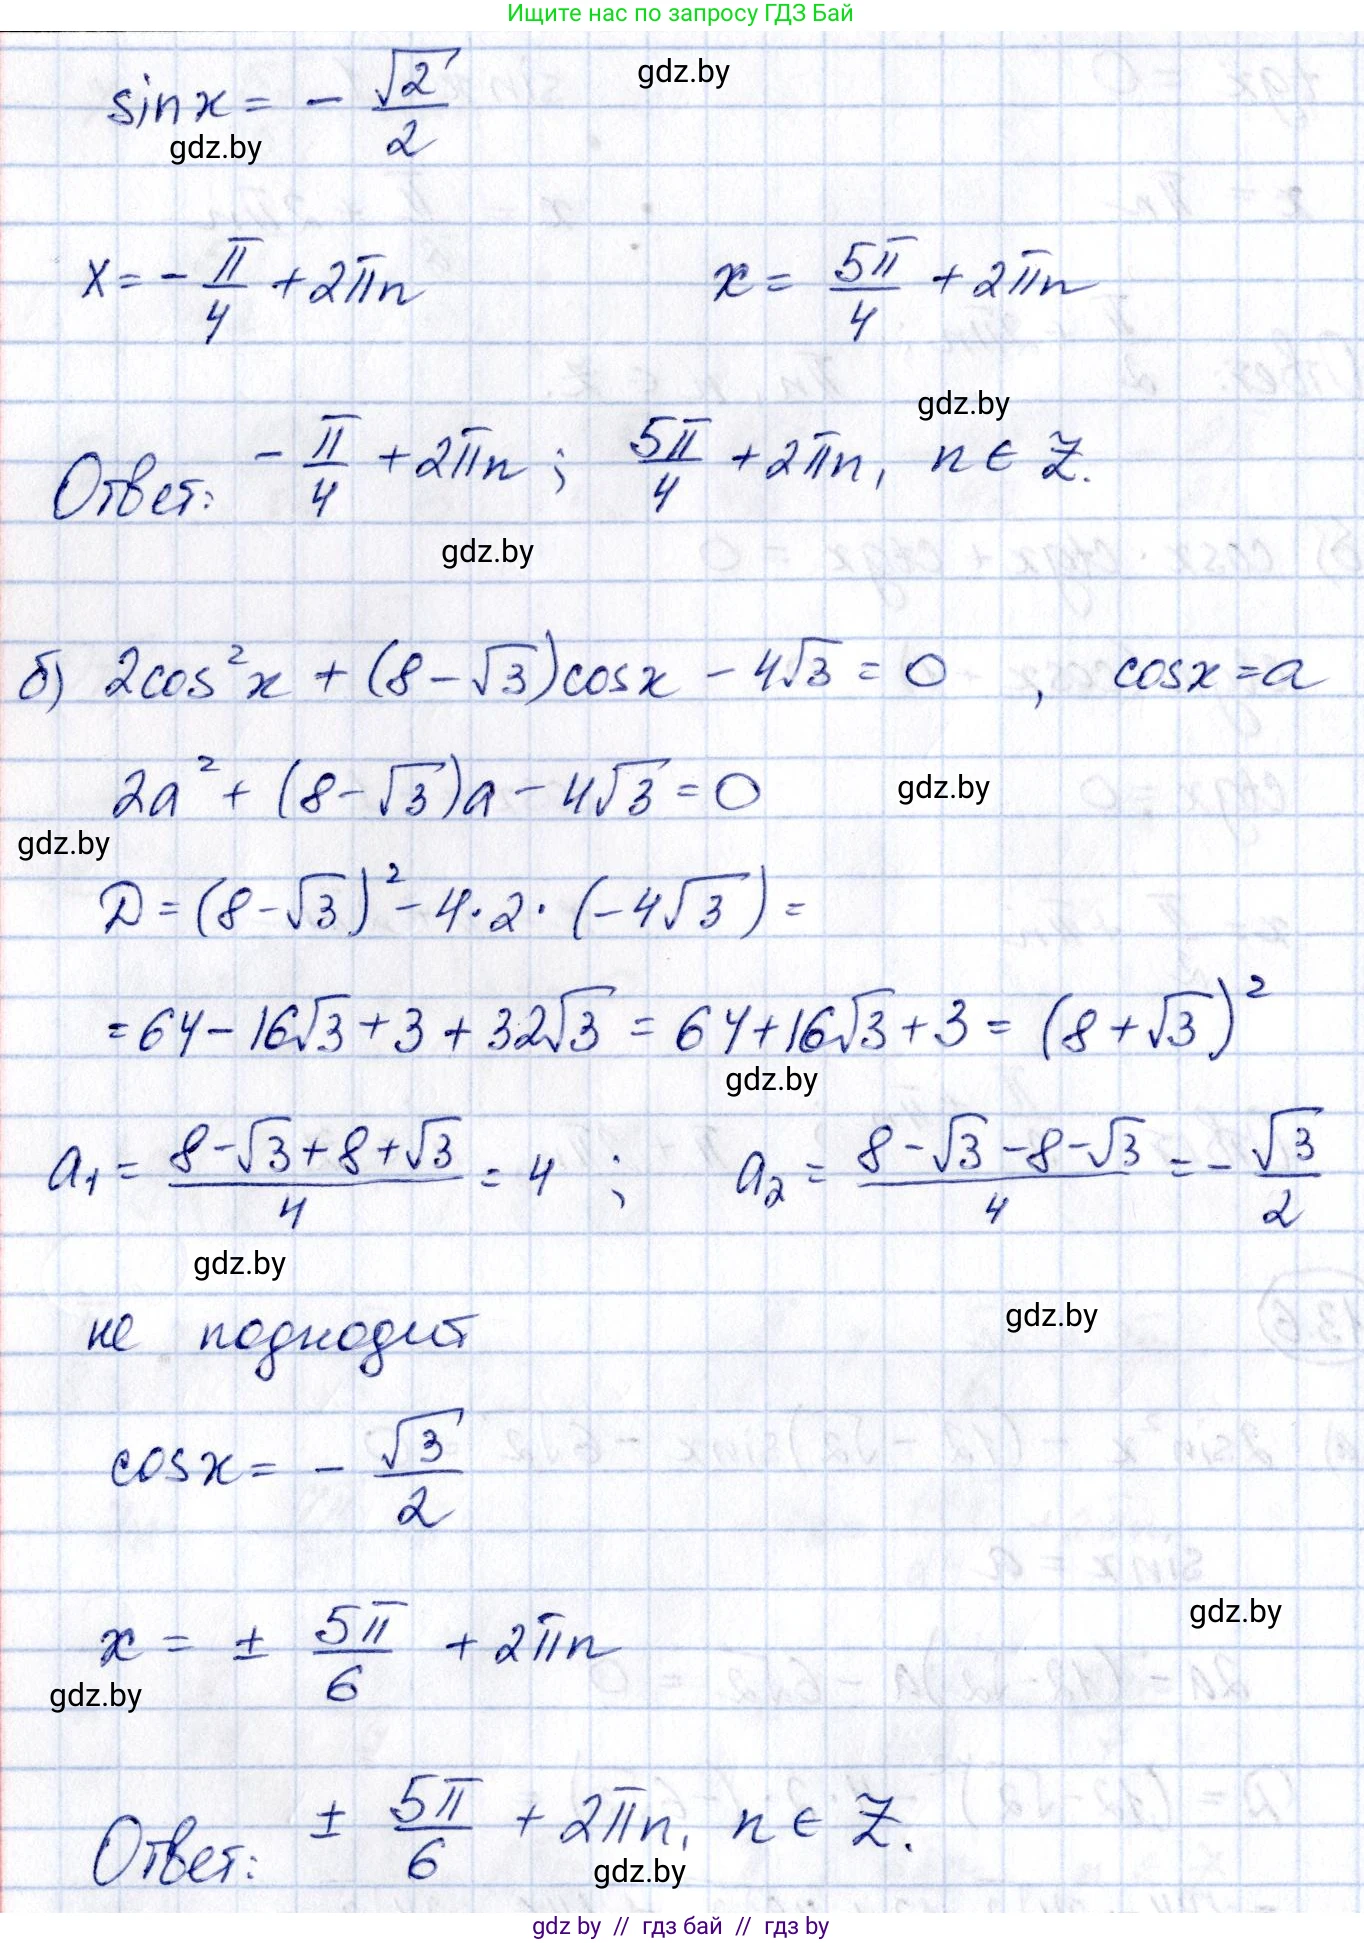 Ищите нас по запросу ГДЗ Бай
sin x = - √2/2
gdz.by
gdz.by
x = - π/4 + 2πn    x = 5π/4 + 2πn
gdz.by
Ответ: - π/4 + 2πn ; 5π/4 + 2πn, n ∈ Z.
gdz.by
б) 2cos²x + (8 - √3)cosx - 4√3 = 0 , cosx = a
2a² + (8 - √3)a - 4√3 = 0
gdz.by
gdz.by
D = (8 - √3)² - 4·2·(-4√3) =
= 64 - 16√3 + 3 + 32√3 = 64 + 16√3 + 3 = (8 + √3)²
gdz.by
a₁ = (8 - √3 + 8 + √3)/4 = 4 ; a₂ = (8 - √3 - 8 - √3)/4 = - √3/2
gdz.by
gdz.by
не подходит
cosx = - √3/2
gdz.by
x = ± 5π/6 + 2πn
gdz.by
Ответ: ± 5π/6 + 2πn, n ∈ Z.
gdz.by
gdz by // гдз бай // гдз by